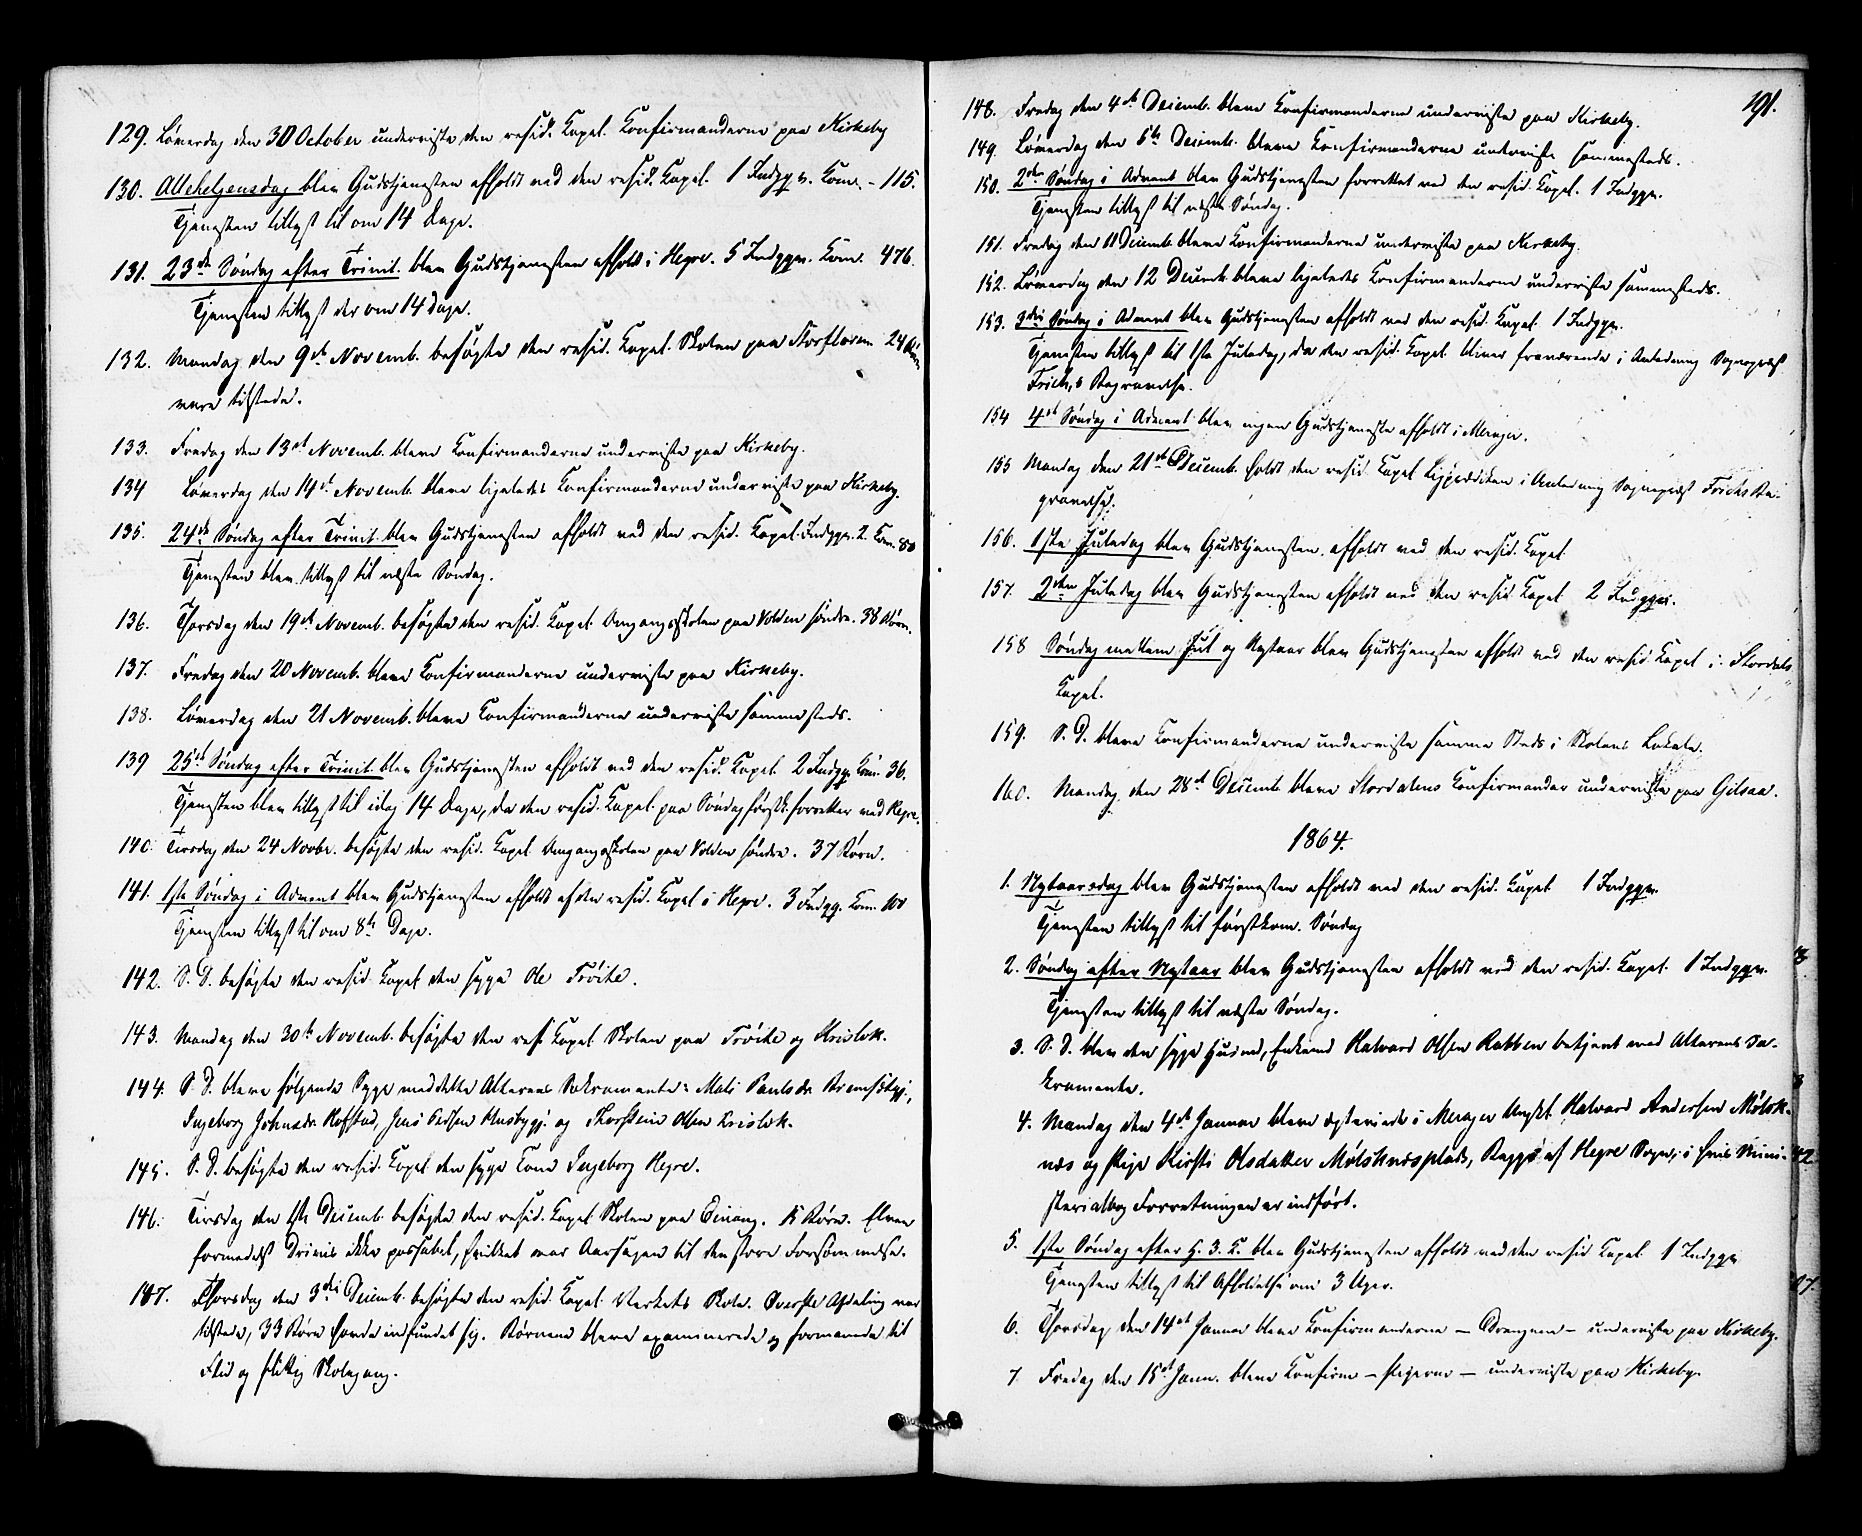 129. Løverdag den 30 October underviste den resid. Capel. Confirmanderne paa Kirkeby
130. Allehelgensdag blev Gudstjenesten afholdt ved den resid. Capel. 1 Indggn. Kom. - 115.
Tjenesten tillyst til om 14 Dage.
131. 23de Søndag efter Trinit. blev Gudstjenesten afholdt i Hegre. 5 Indggn. Kom. 476.
Tjenesten tillyst der om 14 Dage.
132. Mandag den 9de Novemb. besøgte den resid. Capel. Skolen paa Storfloren 24 Børn
vare tilstede.
133. Fredag den 13de Novemb. bleve Confirmanderne underviste paa Kirkeby.
134 Løverdag den 14de Novemb. bleve ligeledes Confirmanderne underviste paa Kirkeby.
135. 24de Søndag efter Trinit. blev Gudstjenesten afholdt ved den resid. Capel. Indggn. 2. Kom. 80
Tjenesten blev tillyst til næste Søndag.
136. Thorsdag den 19de Novemb. besøgte den resid. Capel. Omgangsskolen paa Volden søndre. 38 Børn.
137. Fredag den 20 Novemb. bleve Confirmanderne underviste paa Kirkeby.
138. Løverdag den 21 Novemb. bleve Confirmanderne underviste sammesteds.
139 25de Søndag efter Trinit. blev Gudstjenesten afholdt ved den resid. Capel. 2 Indgg. Kom. 36.
Tjenesten blev tillyst til idag 14 Dage, da den resid. Capel. paa Søndag førstk. forretter ved Hegre.
140. Tirsdag den 24 Novbr. besøgte den resid. Capel Omgangsskolen paa Volden søndre. 37 Børn.
141. 1ste Søndag i Advent blev Gudstjenesten afholdt af den resid. Capel i Hegre. 3 Indgg. Kom. 100
Tjenesten tillyst til om 8te Dage.
142. S. D. besøgte den resid. Capel den syge Ole Trøite.
143. Mandag den 30te Novemb. besøgte den resi. Capel Skolen paa Trøite og
144. S. D. bleve følgende Syge meddelte Alterens Sakramente: Mali Paulsdr.
Ingeborg Johnsdr. Hofstad, Jens Pedsen Husbygj. og Thorstein Olsen
145. S. D. besøgte den resid. Capel den syge Kone Ingeborg Hegre.
146. Tirsdag den 1ste Decemb. besøgte den resid. Capel Skolen paa Einang. 15 Børn. Elven
formedelst Drivis ikke passabel, hvilket var Aarsagen til den store Forsømmelse.
147. Thorsdag den 3die Decemb. besøgte den resid. Capel. Verkets Skole. Øverste Afdeling var
tilstede, 33 Børn havde indfundet sig. Børnene bleve examinerede og formanede til
Flid og flittig Skolegang.
191.
148. Fredag den 4de Decemb. bleve Confirmanderne underviste paa Kirkeby.
149. Løverdag den 5te Decemb. bleve Confirmanderne underviste sammesteds.
150. 2den Søndag i Advent blev Gudstjenesten forrettet ved den resid. Capel. 1 Indggn.
Tjenesten tillyst til næste Søndag.
151. Fredag den 11 Decemb. bleve Confirmanderne underviste paa Kirkeby.
152. Løverdag den 12 Decemb. bleve ligeledes Confirmanderne underviste sammesteds.
153. 3die Søndag i Advent blev Gudstjenesten afholdt ved den resid. Capel. 1 Indggn.
Tjenesten tillyst til 1ste Juledag, da den resid. Capel. bliver fraværende i Anledning Sognepræst
Frich,s Begravelse.
154 4de Søndag i Advent blev ingen Gudstjeneste afholdt i Merager.
155 Mandag den 21de Decemb. holdt den resid. Capel Ligprædiken i Anledning Sognepræst Frichs Be-
gravelse.
156. 1ste Juledag blev Gudstjenesten afholdt ved den resid. Capel
157. 2den Juledag blev Gudstjenesten afholdt ved den resid. Capel 2 Indggn.
158 Søndag mellem Jul og Nytaar blev Gudstjenesten afholdt ved den resid. Capel i Stordals
Capel.
159. S. D. bleve Confirmanderne underviste samme Steds i Skolens Lokale.
160. Mandag den 28de Decemb. bleve Stordalens Confirmander underviste paa Gilsaa.
1864.
1. Nytaarsdag blev Gudstjenesten afholdt ved den resid. Capel 1 Indggn.
Tjenesten tillyst til førstkom. Søndag
2. Søndag efter Nytaar blev Gudstjenesten afholdt ved den resid. Capel. 1 Indggn.
Tjenesten tillyst til næste Søndag.
3. S. D. blev den syge Husmd, Enkemd Halvard Olsen Rabben betjent med Alterens Sa-
kramente.
4. Mandag den 4de Januar bleve ægteviede i Merager Ungkl. Halvard Andersen Mølsk-
næs og Pige Kirsti Olsdatter Mølsknæsplads, Begge af Hegre Sogn, i hvis Mini-
sterialbog Forretningen er indført.
5. 1ste Søndag efter H. 3. K. blev Gudstjenesten afholdt ved den resid Capel 1 Indggn
Tjenesten tillyst til Afholdelse om 3 Uger.
6. Thorsdag den 14de Januar bleve Confirmanderne — Drengene — underviste paa Kirkeby.
7. Fredag den 15de Janu. bleve Confirm. — Pigerne — underviste paa Kirkeby.